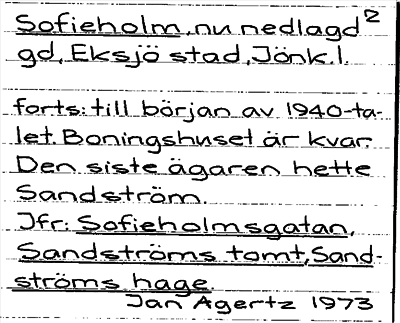 Sofieholm, nu nedlagd 2
gd, Eksjö stad, Jönk.l.
forts: till början av 1940-ta-
let. Boningshuset är kvar.
Den siste ägaren hette
Sandström.
Jfr: Sofieholmsgatan,
Sandströms tomt, Sand-
ströms hage.
Jan Agertz 1973